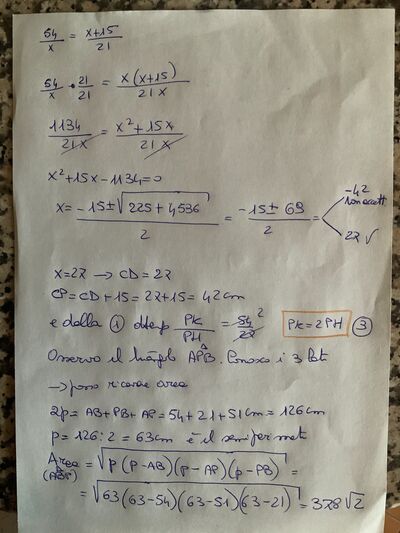 54/x = x+15/21
54/x • 21/21 = x(x+15)/21x
1134/21x = x²+15x/21x
x²+15x-1134=0
x= -15±√225+4536/2 = -15±69/2 = -42 non accett
27 √
x=27 → CD=27
CP=CD+15=27+15=42cm
e dalla ① PK/PH = 54/27 2 PK=2PH ③
Osservo il APB. Conosco i 3 lati
→ posso ricavare area
2p= AB+PB+AP=54+21+51cm=126cm
p=126:2=63cm è il semiperimetro
Area (ABP) = √p(p-AB)(p-AP)(p-PB) =
= √63(63-54)(63-51)(63-21) = 378√2